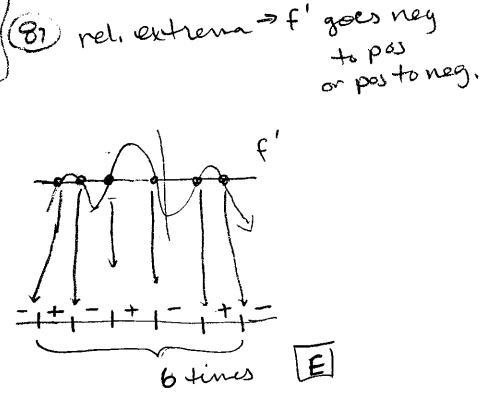 87 rel. extrema → f' goes neg
to pos
or pos to neg.
f'
- + - + - + -
6 times E